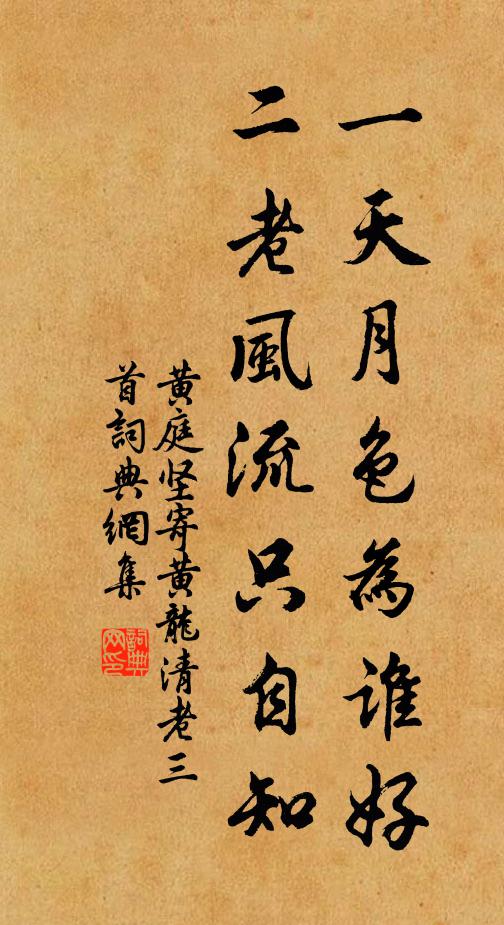 一天月色為誰好
二老風流只自知
黄庭坚寄黄龍清老三
首詞典網集
詞典网印